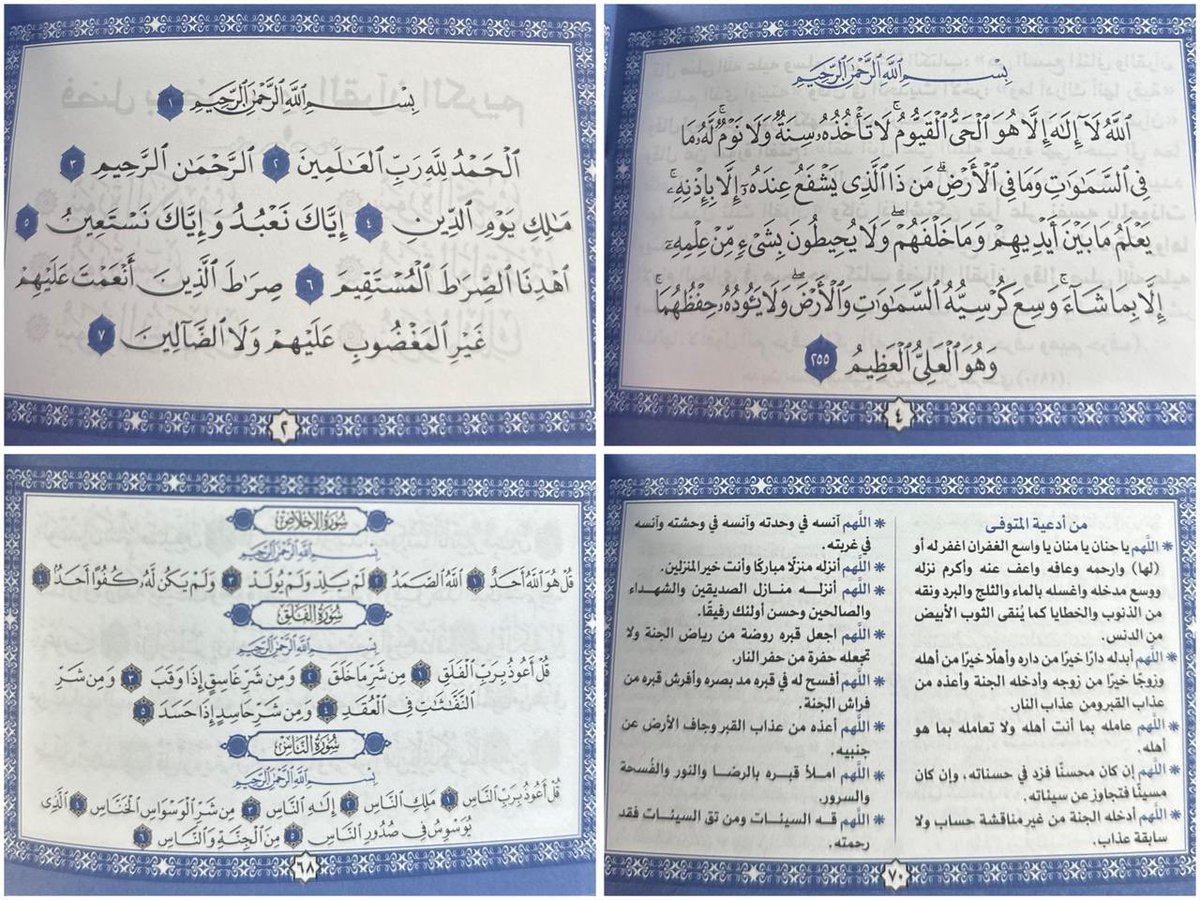 بِسْمِ ٱللَّهِ ٱلرَّحْمَٰنِ ٱلرَّحِيمِ ١
ٱلْحَمْدُ لِلَّهِ رَبِّ ٱلْعَٰلَمِينَ ٢ ٱلرَّحْمَٰنِ ٱلرَّحِيمِ ٣
مَٰلِكِ يَوْمِ ٱلدِّينِ ٤ إِيَّاكَ نَعْبُدُ وَإِيَّاكَ نَسْتَعِينُ ٥
ٱهْدِنَا ٱلصِّرَٰطَ ٱلْمُسْتَقِيمَ ٦ صِرَٰطَ ٱلَّذِينَ أَنْعَمْتَ عَلَيْهِمْ
غَيْرِ ٱلْمَغْضُوبِ عَلَيْهِمْ وَلَا ٱلضَّآلِّينَ ٧
٢
بِسْمِ ٱللَّهِ ٱلرَّحْمَٰنِ ٱلرَّحِيمِ
ٱللَّهُ لَآ إِلَٰهَ إِلَّا هُوَ ٱلْحَىُّ ٱلْقَيُّومُ ۚ لَا تَأْخُذُهُۥ سِنَةٌ وَلَا نَوْمٌ ۚ لَّهُۥ مَا
فِى ٱلسَّمَٰوَٰتِ وَمَا فِى ٱلْأَرْضِ ۗ مَن ذَا ٱلَّذِى يَشْفَعُ عِندَهُۥٓ إِلَّا بِإِذْنِهِۦ ۚ
يَعْلَمُ مَا بَيْنَ أَيْدِيهِمْ وَمَا خَلْفَهُمْ ۖ وَلَا يُحِيطُونَ بِشَىْءٍ مِّنْ عِلْمِهِۦٓ
إِلَّا بِمَا شَآءَ ۚ وَسِعَ كُرْسِيُّهُ ٱلسَّمَٰوَٰتِ وَٱلْأَرْضَ ۖ وَلَا يَـُٔودُهُۥ حِفْظُهُمَا ۚ
وَهُوَ ٱلْعَلِىُّ ٱلْعَظِيمُ ٢٥٥
٤
سُورَةُ الإِخْلَاصِ
بِسْمِ ٱللَّهِ ٱلرَّحْمَٰنِ ٱلرَّحِيمِ
قُلْ هُوَ ٱللَّهُ أَحَدٌ ١ ٱللَّهُ ٱلصَّمَدُ ٢ لَمْ يَلِدْ وَلَمْ يُولَدْ ٣ وَلَمْ يَكُن لَّهُۥ كُفُوًا أَحَدٌۢ ٤
سُورَةُ الفَلَقِ
بِسْمِ ٱللَّهِ ٱلرَّحْمَٰنِ ٱلرَّحِيمِ
قُلْ أَعُوذُ بِرَبِّ ٱلْفَلَقِ ١ مِن شَرِّ مَا خَلَقَ ٢ وَمِن شَرِّ غَاسِقٍ إِذَا وَقَبَ ٣ وَمِن شَرِّ
ٱلنَّفَّٰثَٰتِ فِى ٱلْعُقَدِ ٤ وَمِن شَرِّ حَاسِدٍ إِذَا حَسَدَ ٥
سُورَةُ النَّاسِ
بِسْمِ ٱللَّهِ ٱلرَّحْمَٰنِ ٱلرَّحِيمِ
قُلْ أَعُوذُ بِرَبِّ ٱلنَّاسِ ١ مَلِكِ ٱلنَّاسِ ٢ إِلَٰهِ ٱلنَّاسِ ٣ مِن شَرِّ ٱلْوَسْوَاسِ ٱلْخَنَّاسِ ٤ ٱلَّذِى
يُوَسْوِسُ فِى صُدُورِ ٱلنَّاسِ ٥ مِنَ ٱلْجِنَّةِ وَٱلنَّاسِ ٦
٦٨
من أدعية المتوفى
* اللَّهم يا حنان يا منان يا واسع الغفران اغفر له أو
(لها) وارحمه وعافه واعف عنه وأكرم نزله
ووسع مدخله واغسله بالماء والثلج والبرد ونقه
من الذنوب والخطايا كما يُنقى الثوب الأبيض
من الدنس.
* اللَّهم أبدله دارًا خيرًا من داره وأهلًا خيرًا من أهله
وزوجًا خيرًا من زوجه وأدخله الجنة وأعذه من
عذاب القبر ومن عذاب النار.
* اللَّهم عامله بما أنت أهله ولا تعامله بما هو
أهله.
* اللَّهم إن كان محسنًا فزد في حسناته، وإن كان
مسيئًا فتجاوز عن سيئاته.
* اللَّهم أدخله الجنة من غير مناقشة حساب ولا
سابقة عذاب.
* اللَّهم آنسه في وحدته وآنسه في وحشته وآنسه
في غربته.
* اللَّهم أنزله منزلًا مباركًا وأنت خير المنزلين.
* اللَّهم أنزلـه منازل الصديقين والشهداء
والصالحين وحسن أولئك رفيقًا.
* اللَّهم اجعل قبره روضة من رياض الجنة ولا
تجعله حفرة من حفر النار.
* اللَّهم أفسح له في قبره مد بصره وأفرش قبره من
فراش الجنة.
* اللَّهم أعذه من عذاب القبر وجاف الأرض عن
جنبيه.
* اللَّهم املأ قبـره بالرضـا والنور والفُسحة
والسرور.
* اللَّهم قـه السيئـات ومن تق السيئـات فقد
رحمته.
٧٠